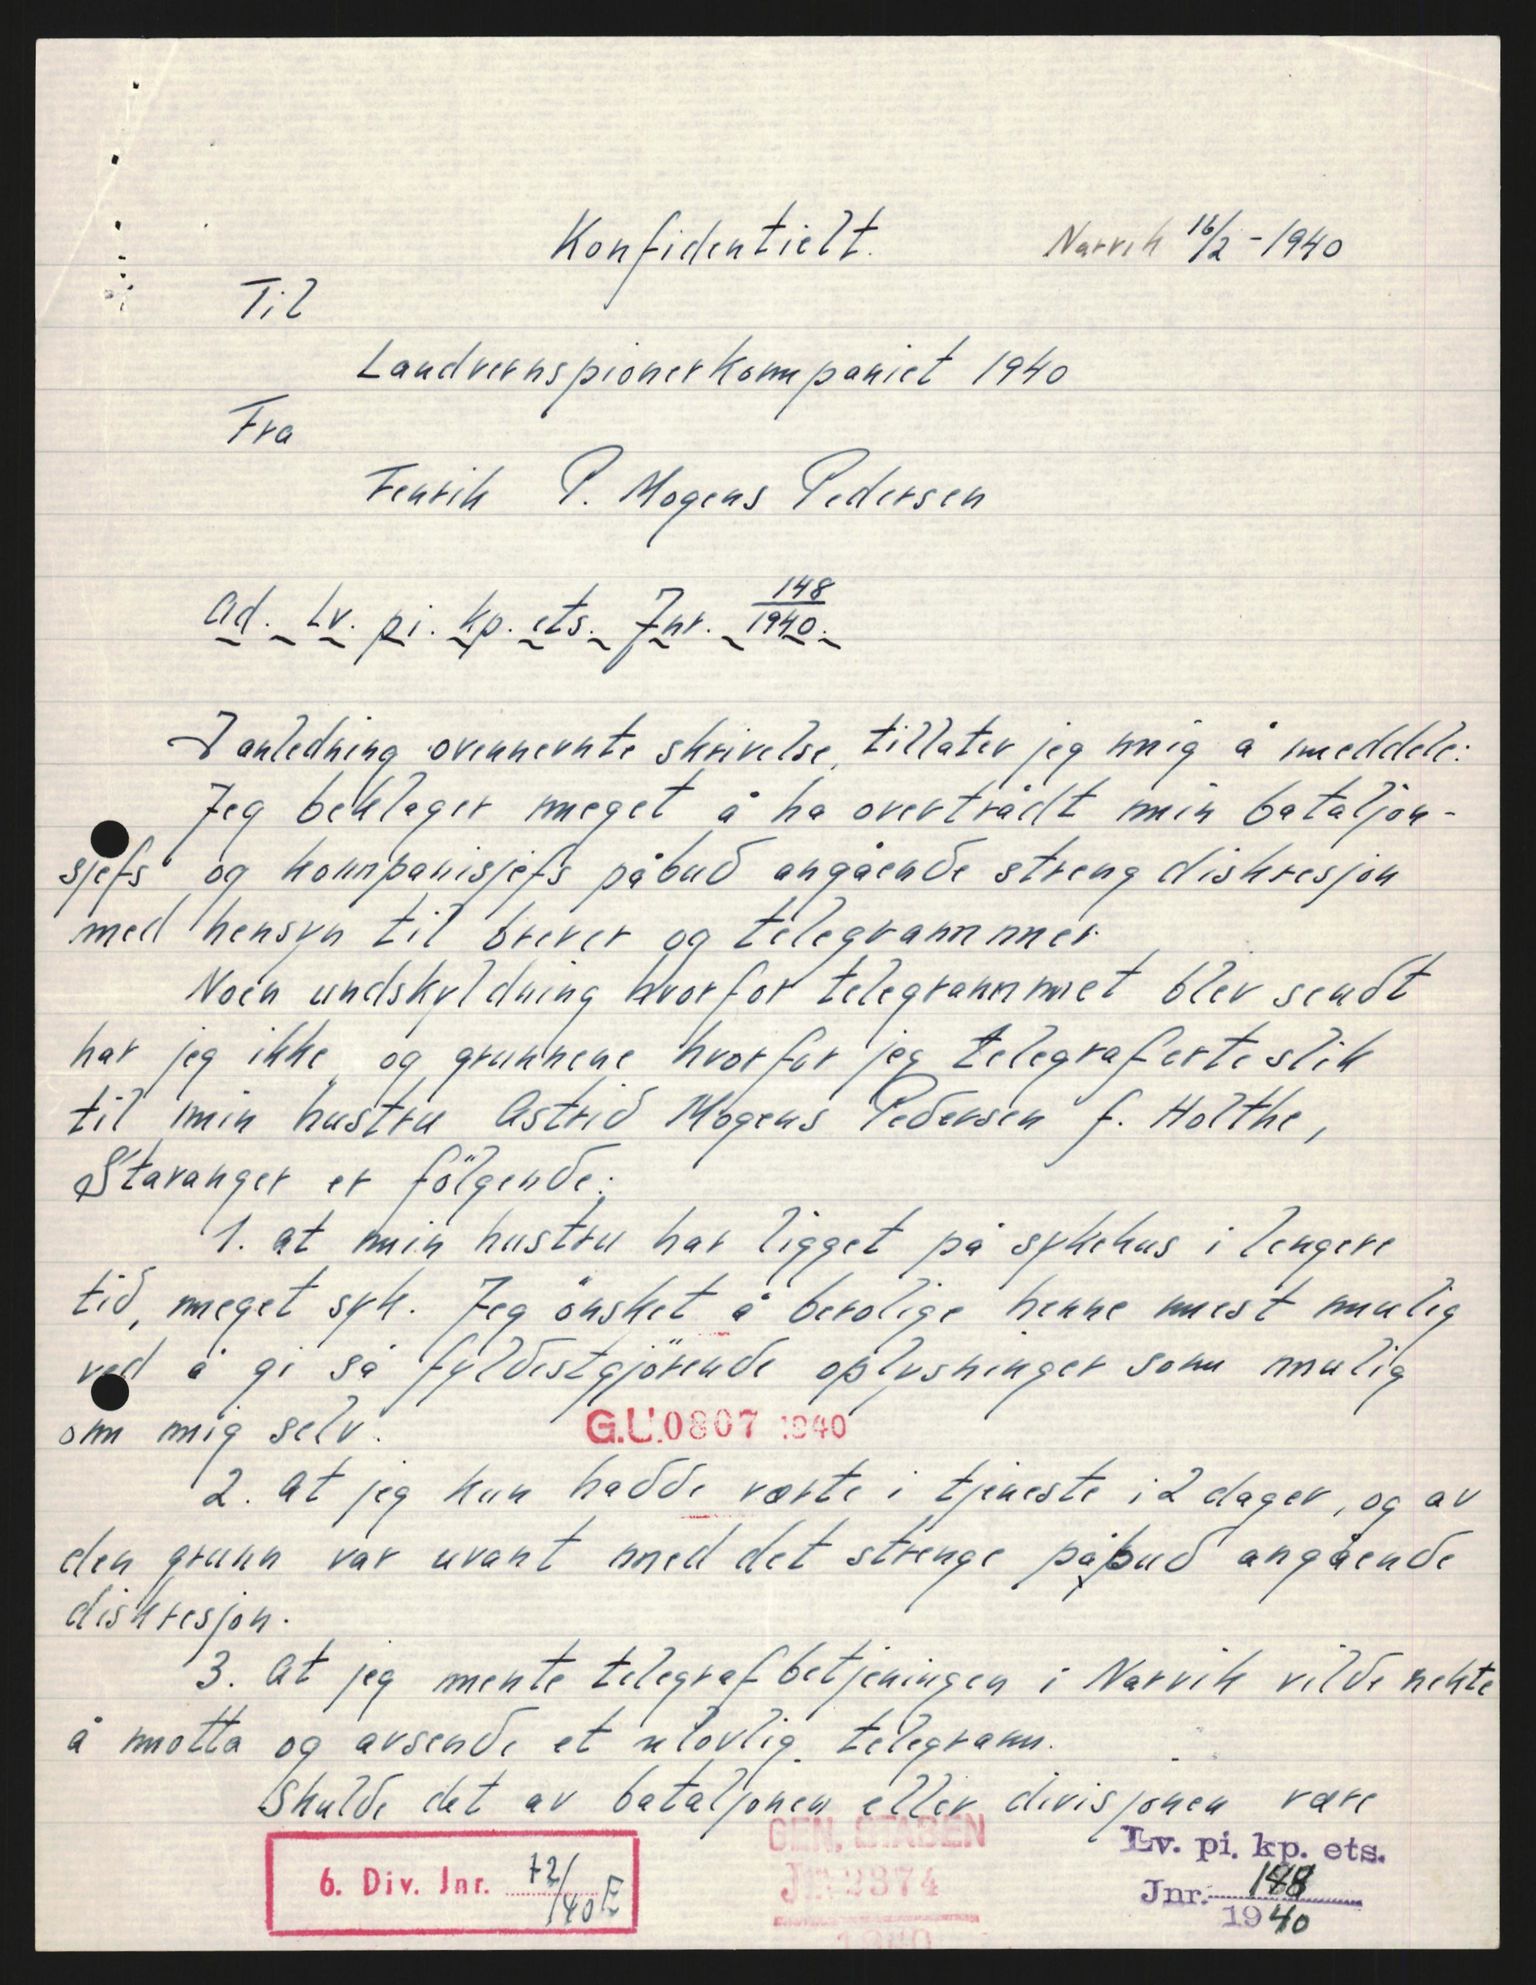 Konfidentielt. Narvik 16/2 - 1940
Til
Landvernspionerkompaniet 1940
Fra
Fenrik P. Mogens Pedersen
Ad. Lv. pi. kp. ets. Jnr. 148/1940.
I anledning ovennevnte skrivelse, tillater jeg mig å meddele:
Jeg beklager meget å ha overtrådt min bataljon-
sjefs og kompanisjefs påbud angående streng diskresjon
med hensyn til brever og telegrammer.
Noen undskyldning hvorfor telegrammet blev sendt
har jeg ikke, og grunnene hvorfor jeg telegraferte slik
til min hustru Astrid Mogens Pedersen f. Holthe,
Stavanger er fölgende:
1. at min hustru har ligget på sykehus i lengere
tid, meget syk. Jeg önsket å berolige henne mest mulig
ved å gi så fyldistgjörende oplysninger som mulig
om mig selv.
G.U.0807 1940
2. At jeg kun hadde værte i tjeneste i 2 dager, og av
den grunn var uvant med det strenge påbud angående
diskresjon.
3. At jeg mente telegrafbetjeningen i Narvik vilde nekte
å motta og avsende et ulovlig telegram.
Skulde det av bataljonen eller divisjonen være
GEN. STABEN
Jnr 2874
1940
6. Div. Jnr. 72/40 E
Lv. pi. kp. ets.
Jnr. 148
1940